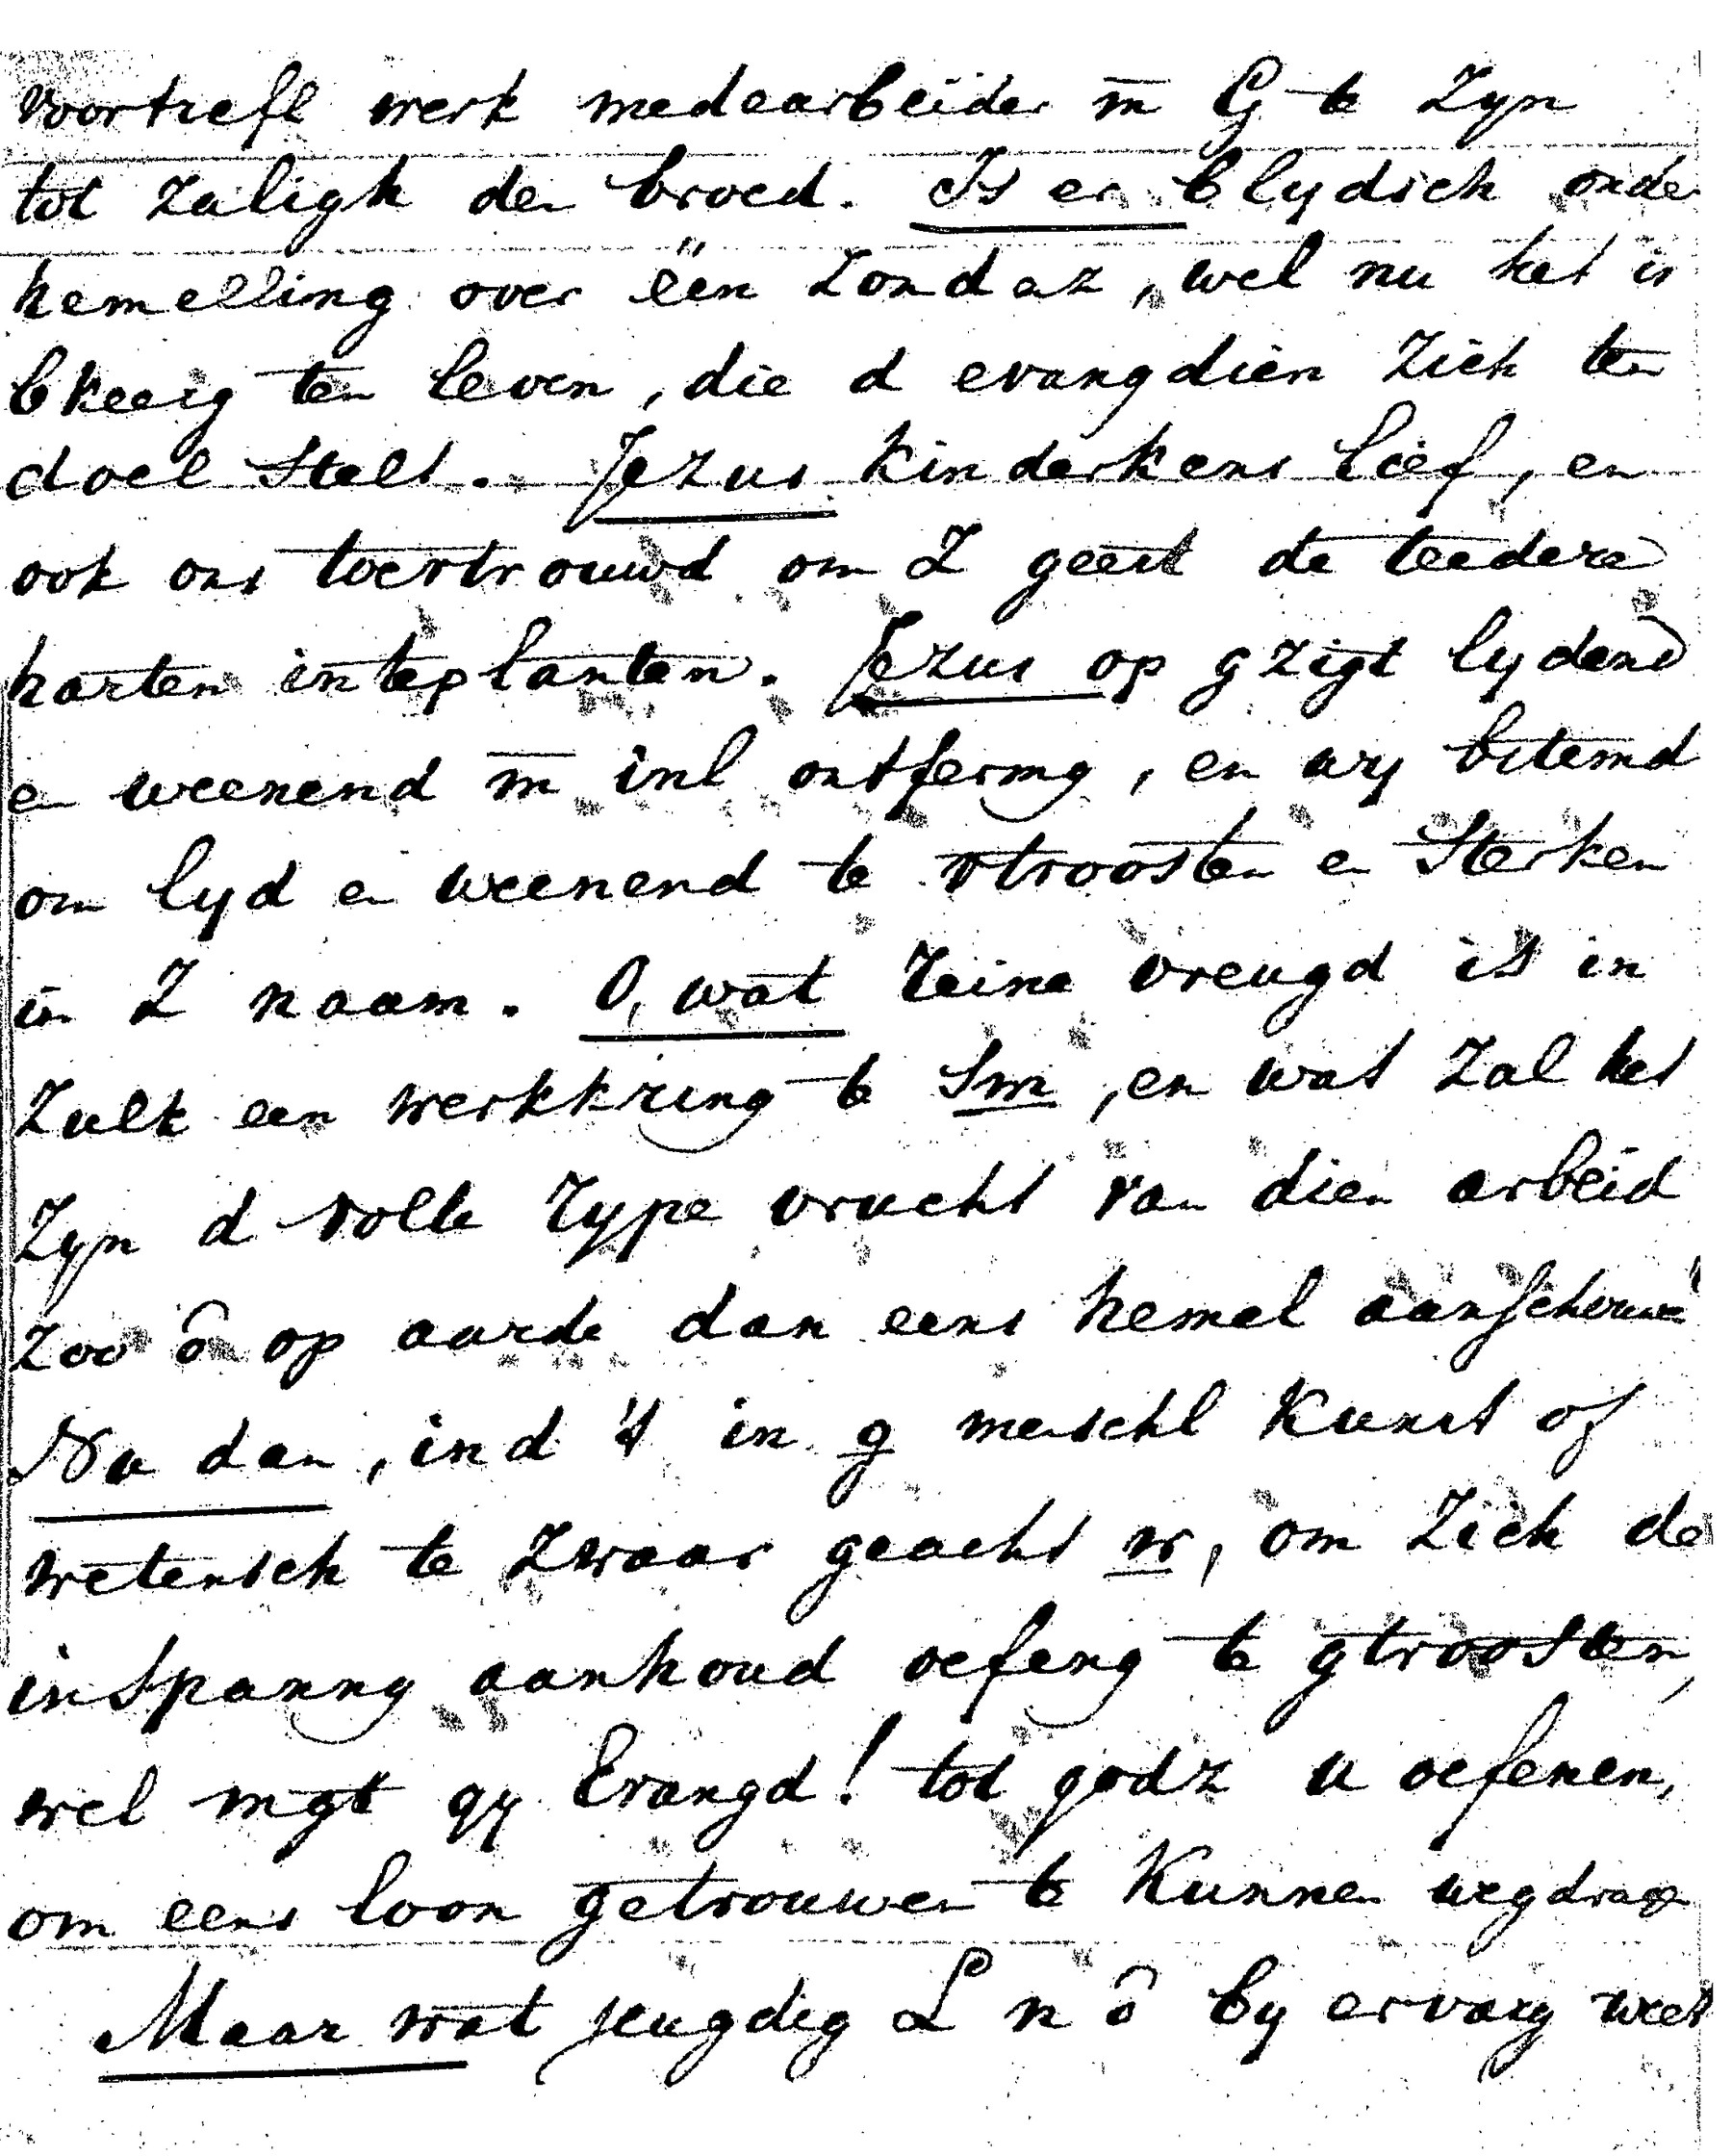 voortrefl werk medearbeider m̄ G te zyn
tot zaligh der broed. Is er blydsch onder
hemelling over ëën zondaz, wel nu het is
bkeerg ten leven, die d evangdien zich ten
doel stelt. Jezus kinderkens lief, en
ook ons toevertrouwd om Z geest de teedere
harten inteplanten. Jezus op gzigt lydend
en weenend m̄ inl ontfermg, en wy bstemd
om lyd en weenend te vtroosten en sterken
in Z naam. O, wat reine vreugd is in
zulk een werkkring te sm, en wat zal het
zyn d volle rype vrucht van dien arbeid
zoo ô op aarde dan eens hemel aanschouwe
Nu dan, ind 't in g menschl kunst of
wetensch te zwaar geacht w, om zich de
inspanng aanhoud oefeng te gtroosten,
wel mgt gy Evangd! tot godz u oefenen,
om eens loon getrouwen te kunnen wegdrag
Maar wat jeugdig L n ô by ervarg weet